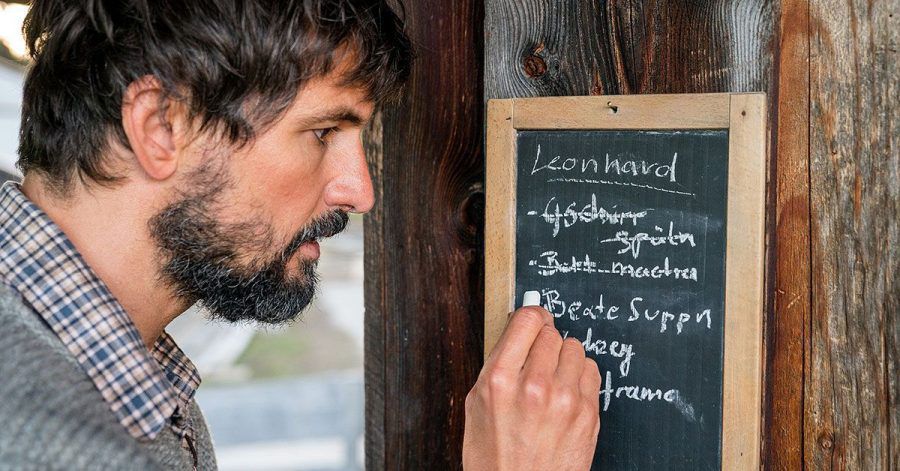 Leonhard
- Gschirr
späln
- Bett machn
Beate Suppn
frama